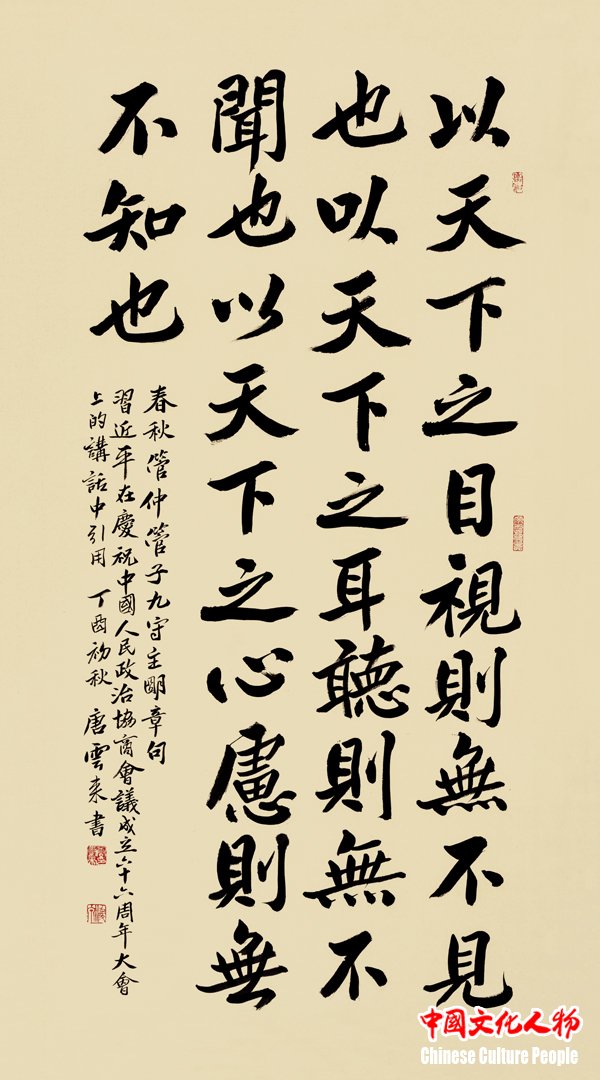 以天下之目視則無不見
也以天下之耳聽則無不
聞也以天下之心慮則無
不知也
春秋管仲管子九守主明章句
習近平在慶祝中國人民政治協商會議成立六十六周年大會
上的講話中引用 丁酉初秋 唐雲来書
中國文化人物
Chinese Culture People